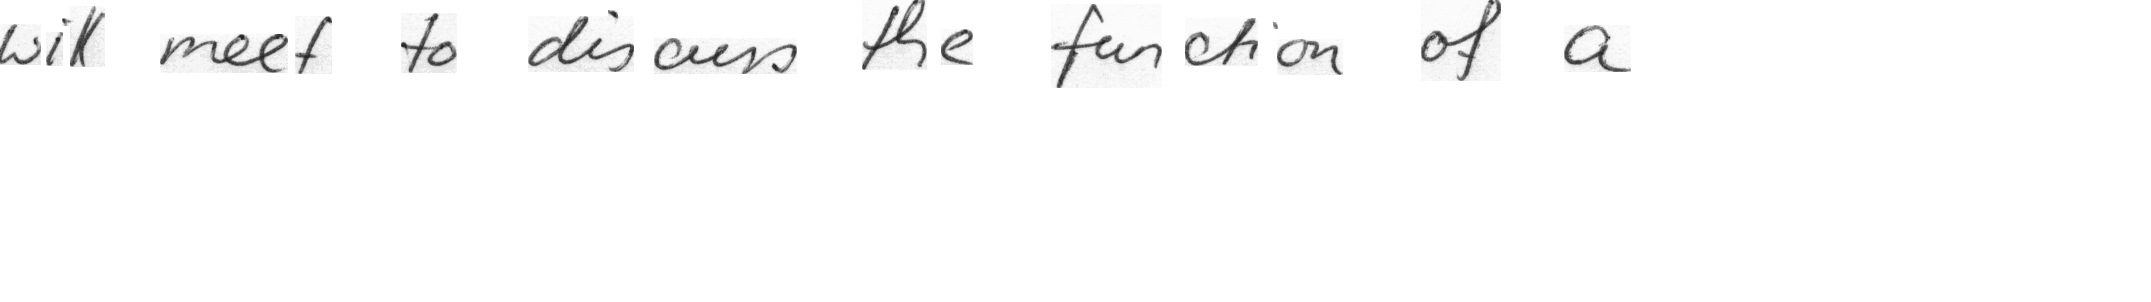 will meet to discuss the function of a